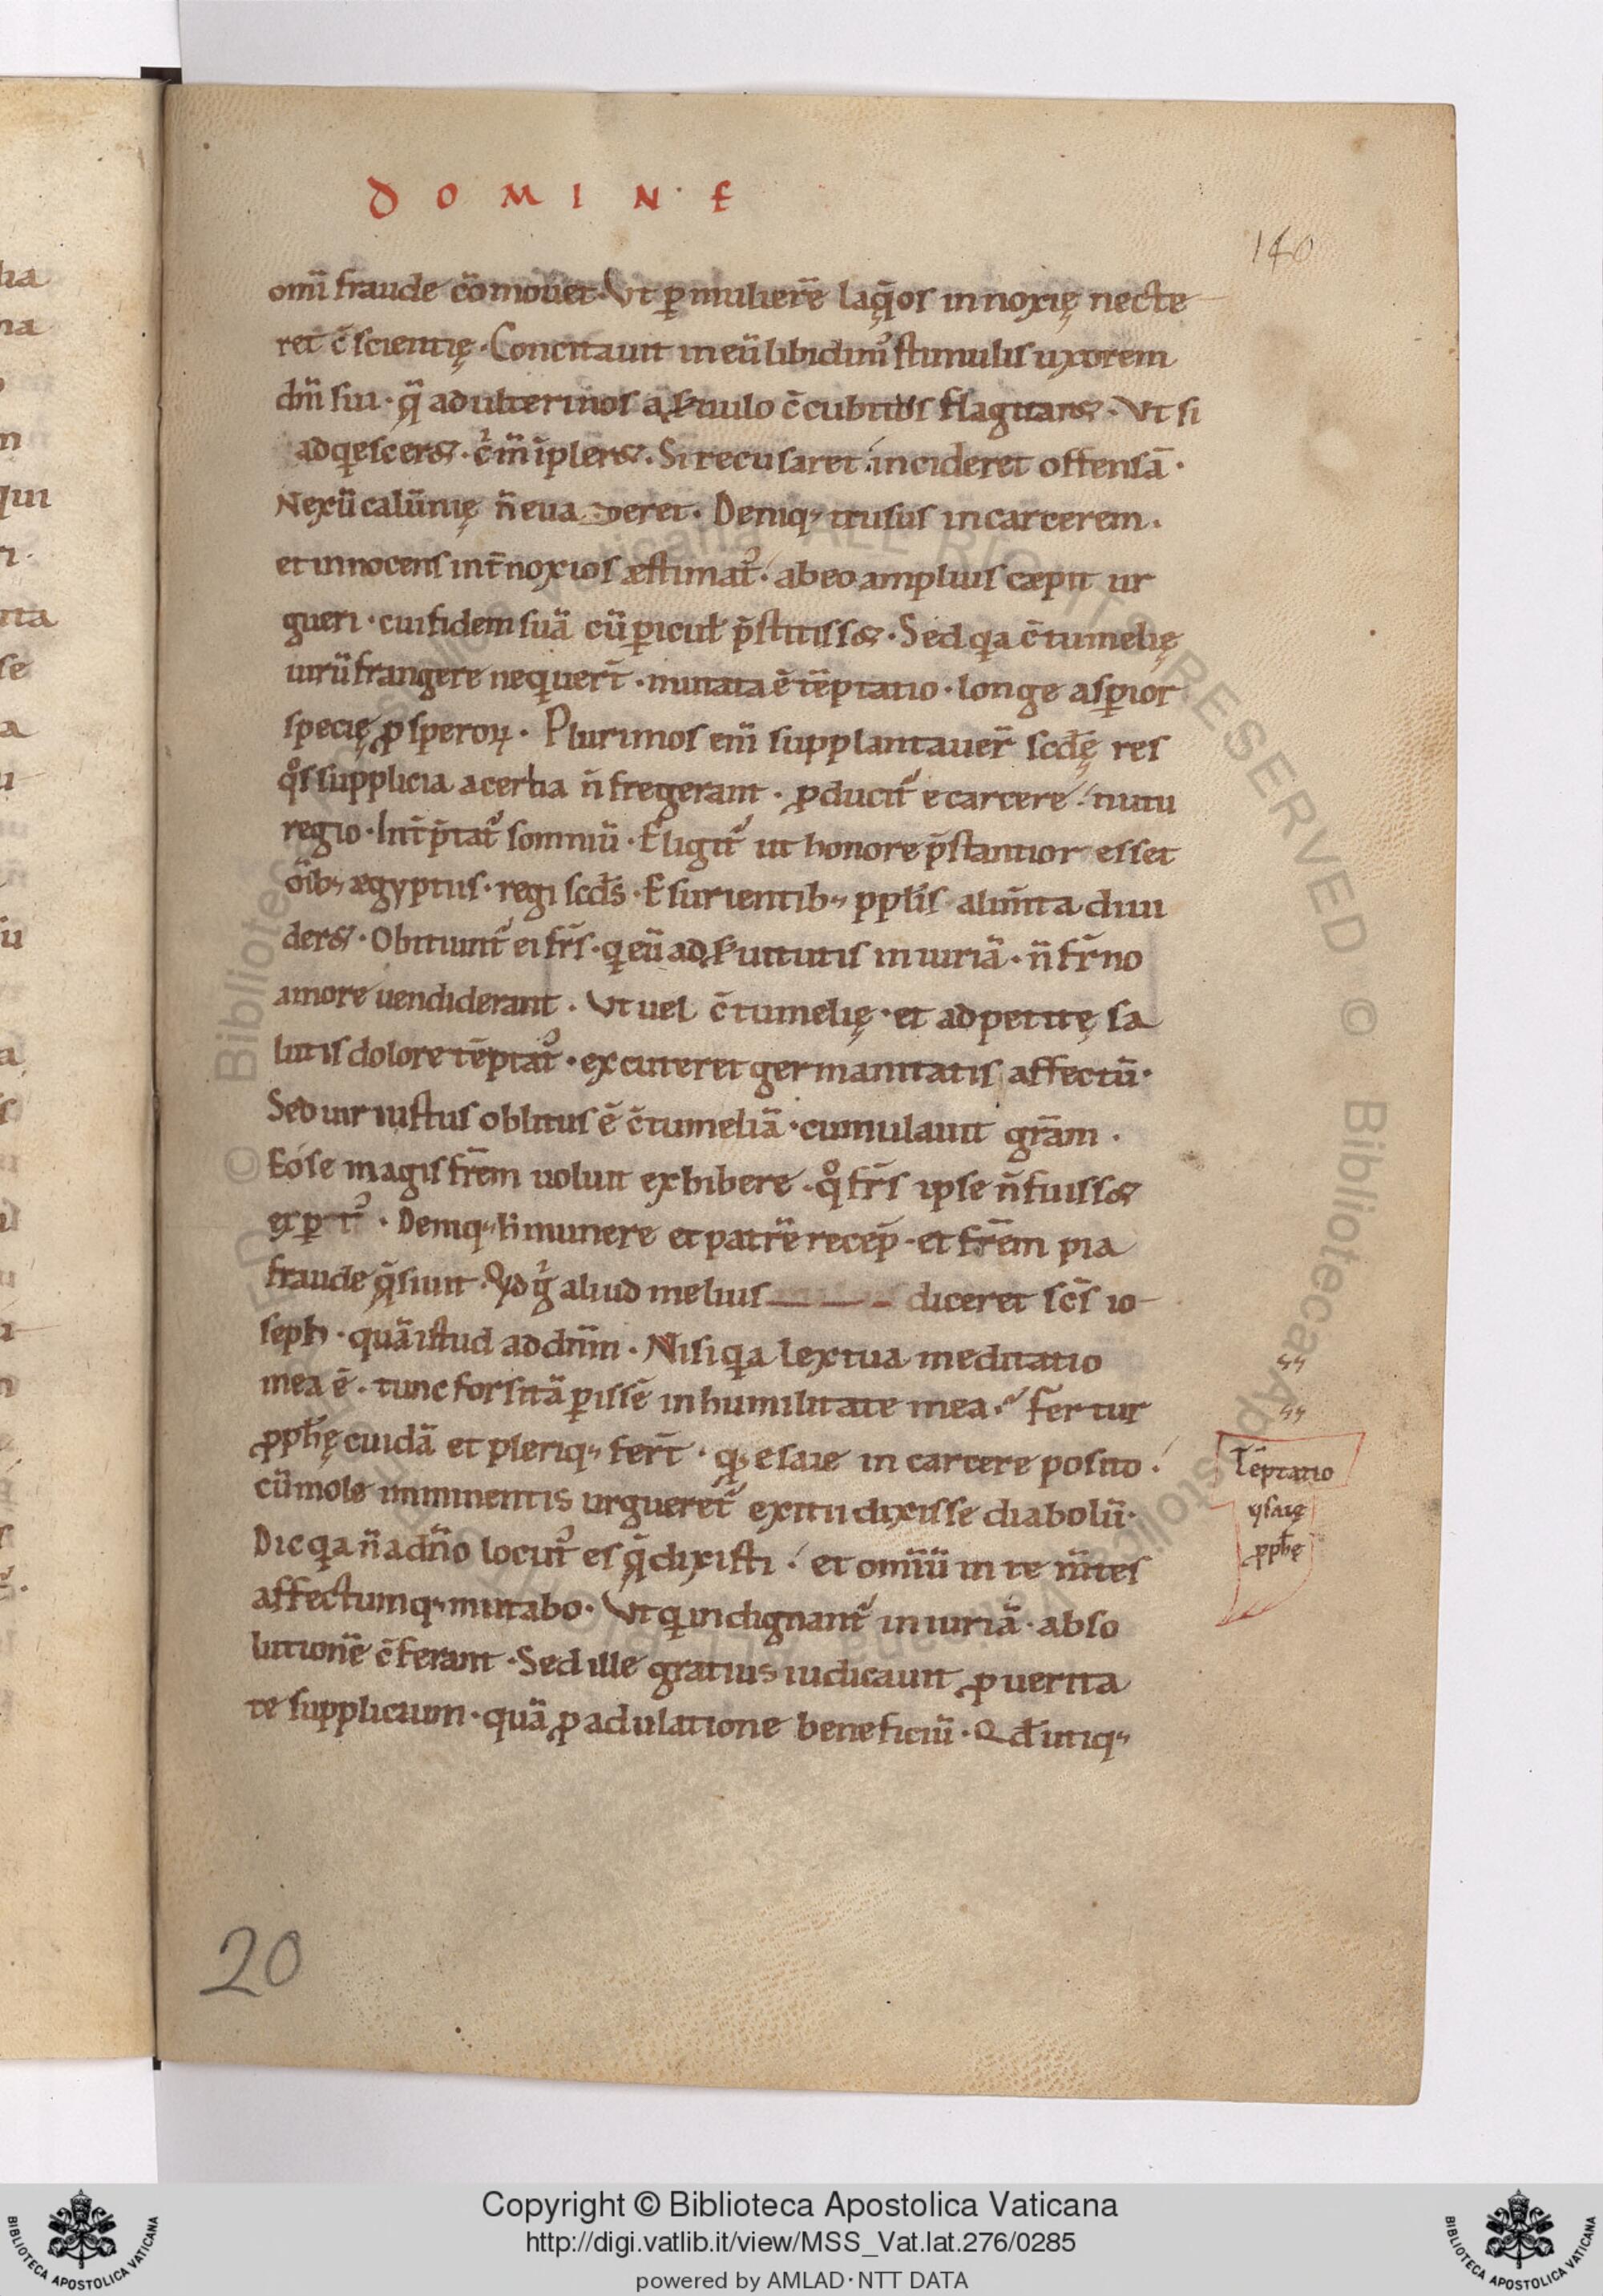 DOMINE
140
omī fraude cōmouet. Vt ꝑ mulierē laq̄os innoxię necte
ret c̄scientię. Concitauit in eū libidinis stimulis uxorem
dn̄i sui. q̄ adulterinos a seruulo c̄cubitus flagitans. Vt si
adqiesceret. c̄m̄ īpleret. Si recusaret incideret offensā.
Nexū calūnię n̄ eua deret. Deniq; trusus in carcerem.
et innocens int̄ noxios æstimat᷒. ab eo amplius cæpit ur
gueri. cui fidem suā cū ꝑicuł p̄stitisset. Sed qa c̄tumelię
uirū frangere nequer̄t. mutata ē tēptatio. longe asꝑior
specię ꝓsperoꝝ. Plurimos enī supplantauer̄ scdę res
qͦs supplicia acerba n̄ fregerant. ꝓducit᷒ e carcere nutu
regio. Int̄p̄tat᷒ somniū. Eligit᷒ ut honore p̄stantior esset
oīb; ægyptus. regi scds. Esurientib; pplis alim̄ta diui
deret. Obtiunt᷒ ei fr̄s. q eū ad seruitutis iniuriā. n̄ fr̄no
amore uendiderant. Vt uel c̄tumelię. et adpetitę sa
lutis dolore tēptat᷒. excuteret germanitatis affectū.
Sed uir iustus oblitus ē c̄tumeliā. cumulauit gr̄am.
Eo se magis fr̄em uoluit exhibere. qͦ fr̄s ipse n̄ fuisset
exꝑt᷒. Deniq; h̄ munere et patrē recep̄. et fr̄em pia
fraude q̄siuit. Qd g̊ aliud melius diceret scs̄ io
seph. quā istud ad dn̄m. Nisi qa lex tua meditatio
mea ē. tunc forsitā ꝑissē in humilitate mea. Fertur
ꝓph̄ę cuidā et pleriq; fer̄t. q; esaie in carcere posito.
cū mole imminentis urgueret᷒ exitii dixisse diabolū.
Dic qa n̄ a dn̄o locut᷒ es q̄ dixisti. et omīū in te m̄tes
affectumq; mutabo. Vt q indignant᷒ iniuriā. abso
lutionē c̄ferant. Sed ille gratius iudicauit ꝓ uerita
te supplicium. quā ꝓ adulatione beneficiū. Qd utiq;
Tēptatio
ysaię
ꝓph̄ę
20
© Biblioteca Apostolica Vaticana ALL RIGHTS RESERVED © Biblioteca Apostolica Vaticana
Copyright © Biblioteca Apostolica Vaticana
http://digi.vatlib.it/view/MSS_Vat.lat.276/0285
powered by AMLAD·NTT DATA
BIBLIOTECA APOSTOLICA VATICANA
BIBLIOTECA APOSTOLICA VATICANA